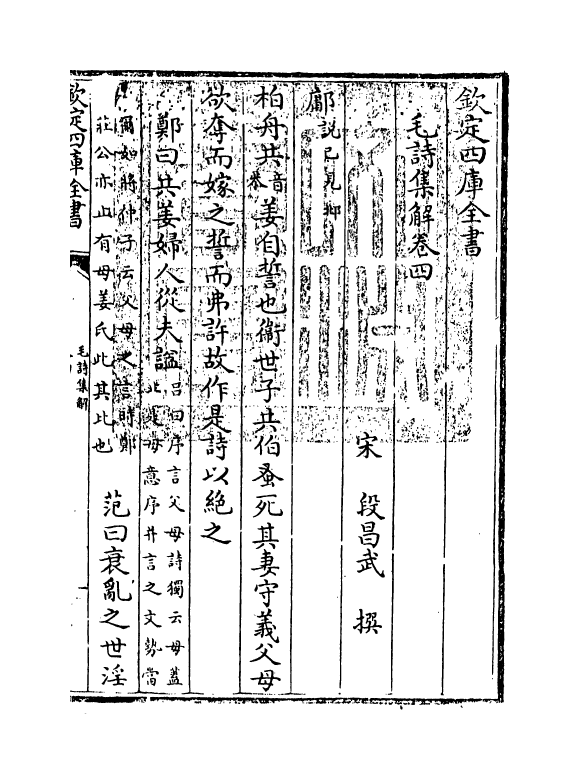 欽定四庫全書
毛詩集解卷四
宋 段昌武 撰
鄘說已見邶
柏舟共音恭姜自誓也衛世子共伯蚤死其妻守義父母
欲奪而嫁之誓而弗許故作是詩以絕之
鄭曰共姜婦人從夫諡呂曰序言父母詩獨云母蓋
止是母意序并言之文勢當
爾如將仲子云父母之言時鄭
莊公亦止有母姜氏此其比也 范曰衰亂之世淫
欽定四庫全書
毛詩集解